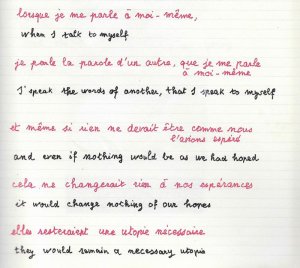 lorsque je me parle à moi-même,
when I talk to myself
je parle la parole d'un autre, que je me parle
à moi-même
I speak the words of another, that I speak to myself
et même si rien ne devait être comme nous
l'avions espéré
and even if nothing would be as we had hoped
cela ne changerait rien à nos espérances
it would change nothing of our hopes
elles resteraient une utopie nécessaire
they would remain a necessary utopia